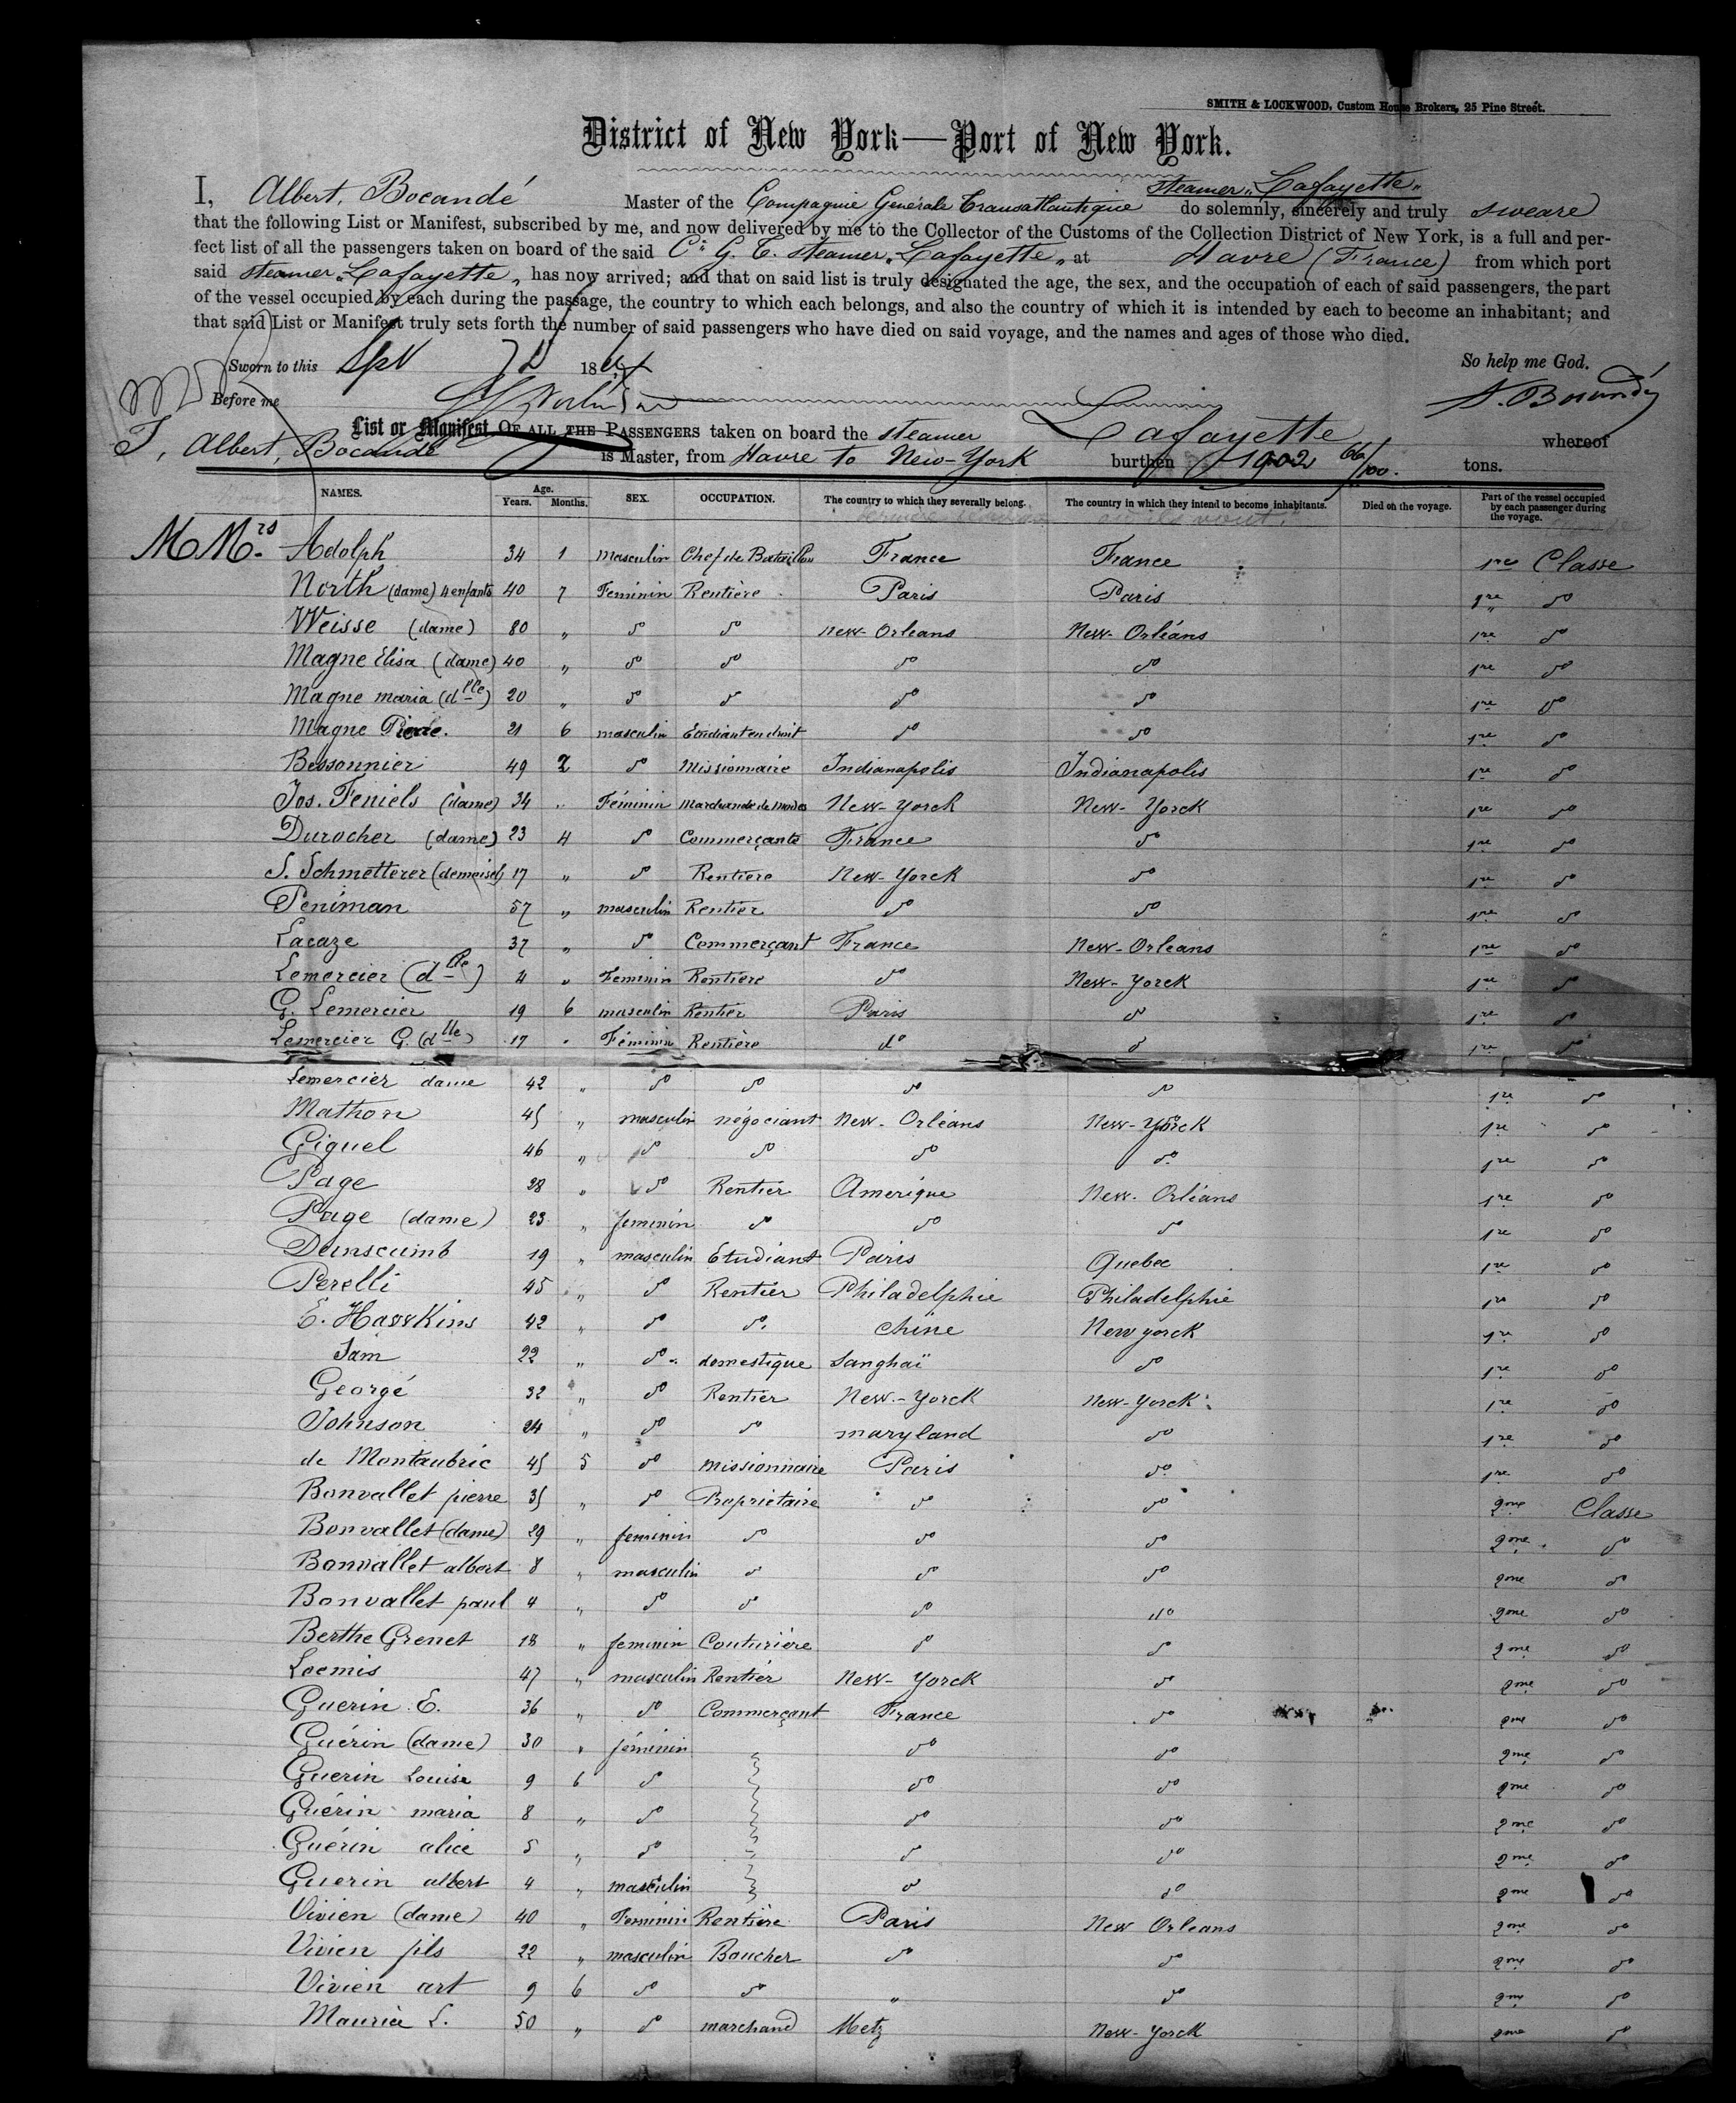 SMITH & LOCKWOOD, Custom House Brokers, 25 Pine Street.
District of New York—Port of New York.
I, Albert, Bocandé Master of the Compagnie Genérale Transatlantique steamer „Lafayette„ do solemnly, sincerely and truly sweare
that the following List or Manifest, subscribed by me, and now delivered by me to the Collector of the Customs of the Collection District of New York, is a full and per-
fect list of all the passengers taken on board of the said Cie G. T. steamer „Lafayette„ at Havre (France) from which port
said steamer „Lafayette„ has now arrived; and that on said list is truly designated the age, the sex, and the occupation of each of said passengers, the part
of the vessel occupied by each during the passage, the country to which each belongs, and also the country of which it is intended by each to become an inhabitant; and
that said List or Manifest truly sets forth the number of said passengers who have died on said voyage, and the names and ages of those who died.
Sworn to this 186 So help me God.
Before me A. Bocandé
List or Manifest OF ALL THE PASSENGERS taken on board the steamer Lafayette whereof
I, Albert, Bocandé is Master, from Havre to New-York burthen 1902 66/100. tons.
NAMES. Age. Years. Months. SEX. OCCUPATION. The country to which they severally belong. The country in which they intend to become inhabitants. Died on the voyage. Part of the vessel occupied by each passenger during the voyage.
M Mrs. Adolph 34 1 masculin Chef de Bataillon France France 1re Classe
North (dame) 4 enfants 40 7 Féminin Rentière Paris Paris 1re do
Weisse (dame) 80 „ do do New-Orleans New-Orléans 1re do
Magne Elisa (dame) 40 „ do do do do 1re do
Magne maria (dlle) 20 „ do do do do 1re do
Magne 21 6 masculin Etudiant en droit do do 1re do
Bessonnier 49 2 do Missionnaire Indianapolis Indianapolis 1re do
Jos. Feniels (dame) 34 „ Féminin Marchande de modes New-Yorck New-Yorck 1re do
Durocher (dame) 23 4 do Commerçante France do 1re do
S. Schmetterer (demoisel) 17 „ do Rentière New-Yorck do 1re do
Peniman 57 „ masculin Rentier do do 1re do
Lacaze 37 „ do Commerçant France New-Orleans 1re do
Lemercier (dlle) 4 „ Feminin Rentière do New-Yorck 1re do
G. Lemercier 19 6 masculin Rentier Paris do 1re do
Lemercier G. (dlle) 17 „ Féminin Rentière do do 1re do
Lemercier dame 42 „ do do do do 1re do
Mathon 45 „ masculin négociant New-Orléans New-Yorck 1re do
Giquel 46 „ do do do do 1re do
Page 28 „ do Rentier Amerique New-Orléans 1re do
Page (dame) 23 „ feminin do do do 1re do
Dunscumb 19 „ masculin Etudiant Paris Quebec 1re do
Perelli 45 „ do Rentier Philadelphie Philadelphie 1re do
E. Hasskins 42 „ do do. chine New yorck 1re do
Sam 22 „ do domestique Sanghaï do 1re do
Georgé 32 „ do Rentier New-Yorck New-Yorck 1re do
Johnson 24 „ do do maryland do 1re do
de Montaubric 45 5 do missionnaire Paris do 1re do
Bonvallet pierre 35 „ do Propriétaire do do 2me Classe
Bonvallet (dame) 29 „ feminin do do do 2me do
Bonvallet albert 8 „ masculin do do do 2me do
Bonvallet paul 4 „ do do do do 2me do
Berthe Grenet 18 „ feminin Couturière do do 2me do
Loemis 47 „ masculin Rentier New-Yorck do 2me do
Guerin E. 36 „ do Commerçant France do 2me do
Guérin (dame) 30 „ féminin do do 2me do
Guerin Louise 9 6 do do do 2me do
Guérin maria 8 „ do do do 2me do
Guérin alice 5 „ do do do 2me do
Guerin albert 4 „ masculin do do 2me do
Vivien (dame) 40 „ Feminin Rentière Paris New Orleans 2me do
Vivien fils 22 „ masculin Boucher do do 2me do
Vivien art 9 6 do do „ do 2me do
Maurice L. 50 „ do marchand Metz New-Yorck 2me do